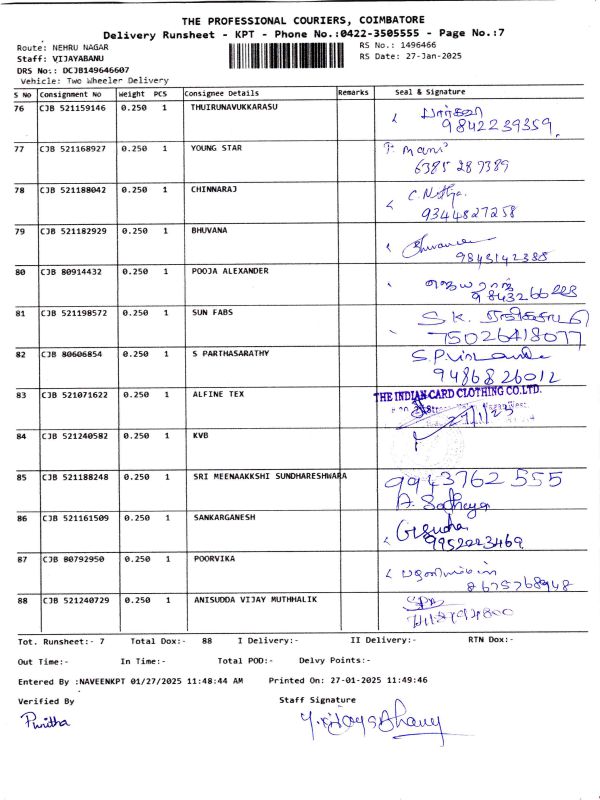 THE PROFESSIONAL COURIERS, COIMBATORE
Delivery Runsheet - KPT - Phone No.:0422-3505555 - Page No.:7
Route: NEHRU NAGAR RS No.: 1496466
Staff: VIJAYABANU RS Date: 27-Jan-2025
DRS No.: DCJB149646607
Vehicle: Two Wheeler Delivery
S No Consignment No Weight PCS Consignee Details Remarks Seal & Signature
76 CJB 521159146 0.250 1 THUIRUNAVUKKARASU
9842239359
77 CJB 521168927 0.250 1 YOUNG STAR P. Mani
6385 287389
78 CJB 521188042 0.250 1 CHINNARAJ
9344827258
79 CJB 521182929 0.250 1 BHUVANA
9843142388
80 CJB 80914432 0.250 1 POOJA ALEXANDER
81 CJB 521198572 0.250 1 SUN FABS S.K.
7502641807
82 CJB 80606854 0.250 1 S PARTHASARATHY
9486826012
83 CJB 521071622 0.250 1 ALFINE TEX THE INDIAN CARD CLOTHING CO.LTD.
84 CJB 521240582 0.250 1 KVB
85 CJB 521188248 0.250 1 SRI MEENAAKKSHI SUNDHARESHWARA 9943762555
86 CJB 521161509 0.250 1 SANKARGANESH
9952023469
87 CJB 80792950 0.250 1 POORVIKA
8675768948
88 CJB 521240729 0.250 1 ANISUDDA VIJAY MUTHHALIK
Tot. Runsheet:- 7 Total Dox:- 88 I Delivery:- II Delivery:- RTN Dox:-
Out Time:- In Time:- Total POD:- Delvy Points:-
Entered By :NAVEENKPT 01/27/2025 11:48:44 AM Printed On: 27-01-2025 11:49:46
Verified By Staff Signature
Punitha